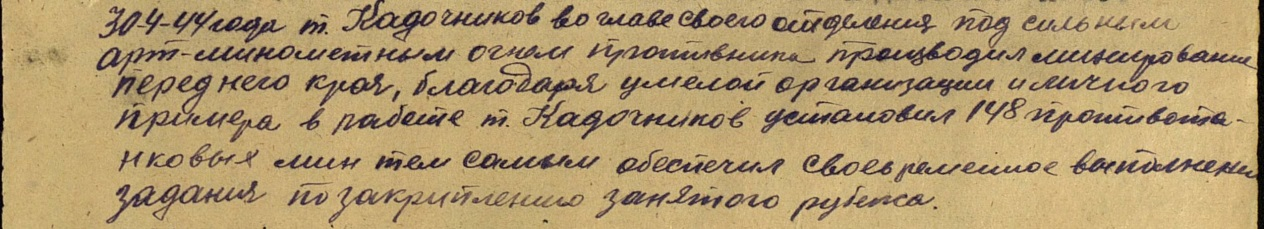 30-4-44 года т. Кадочников во главе своего отделения под сильным
арт-минометным огнем противника производил минирование
переднего края, благодаря умелой организации и личного
примера в работе т. Кадочников установил 148 противота-
нковых мин тем самым обеспечил своевременное выполнение
задания по закриплению занятого рубежа.